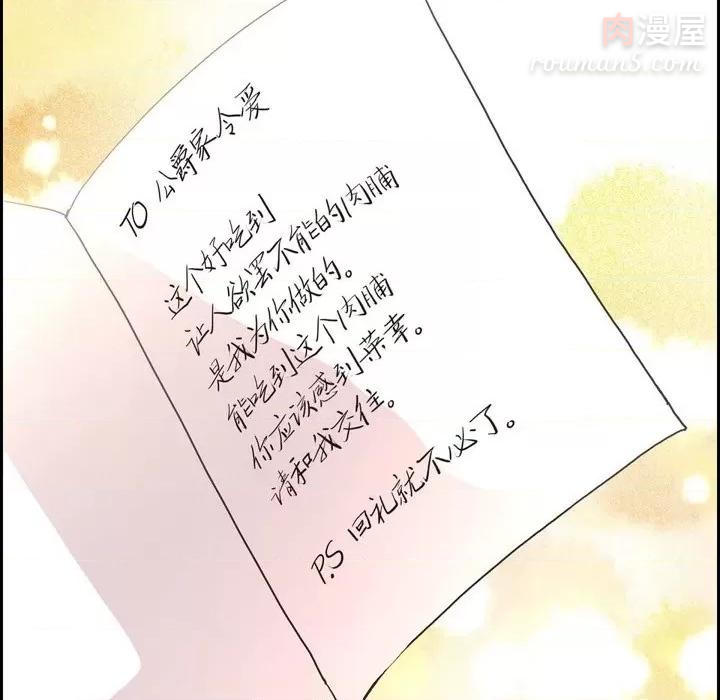 肉漫屋
roumans5.com
TO 公爵家令爱
这个好吃到
让人欲罢不能的肉脯
是我为你做的。
能吃到这个肉脯
你应该感到荣幸。
请和我交往。
P.S 回礼就不必了。